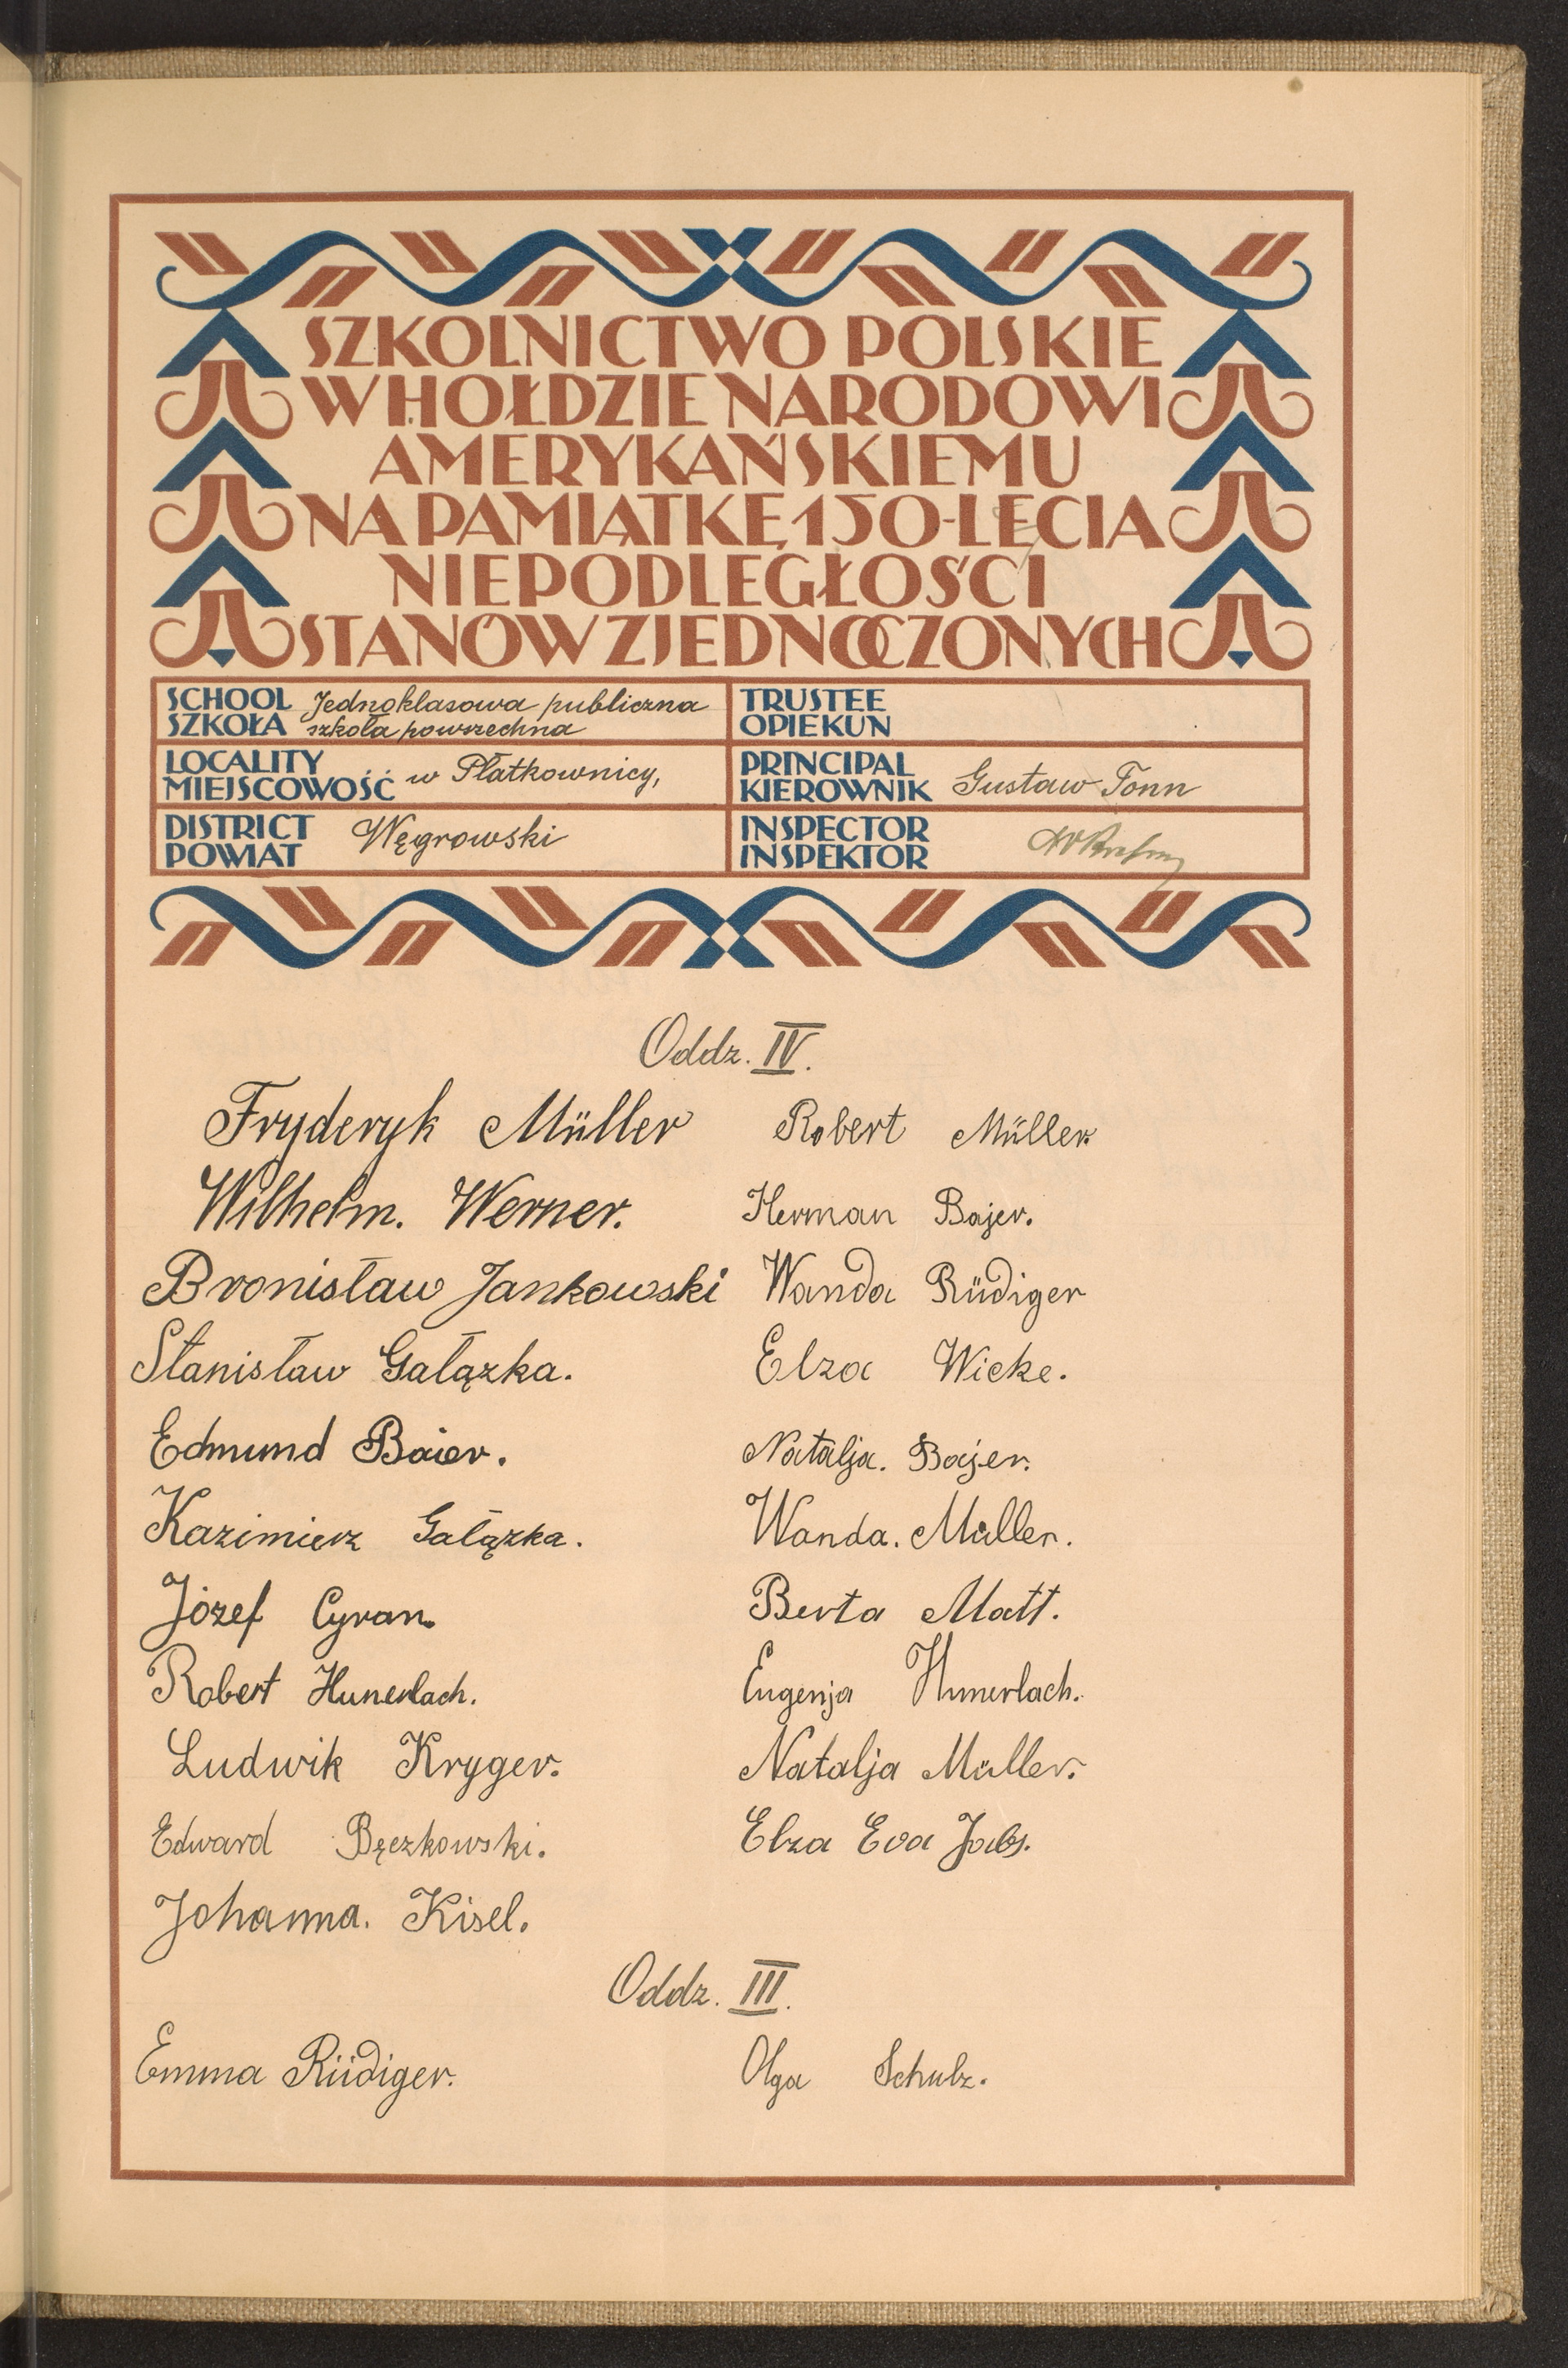 SZKOLNICTWO POLSKIE
W HOŁDZIE NARODOWI
AMERYKAŃSKIEMU
NA PAMIĄTKĘ 150-LECIA
NIEPODLEGŁOŚCI
STANÓW ZJEDNOCZONYCH
SCHOOL
SZKOŁA
Jednoklasowa publiczna
szkoła powszechna
TRUSTEE
OPIEKUN
LOCALITY
MIEJSCOWOŚĆ
w Płatkownicy,
PRINCIPAL
KIEROWNIK
Gustaw Tonn
DISTRICT
POWIAT
Węgrowski
INSPECTOR
INSPEKTOR
Oddz. IV.
Fryderyk Müller
Wilhelm. Werner.
Bronisław Jankowski
Stanisław Gałązka.
Edmund Baier.
Kazimierz Gałązka.
Józef Cyran.
Robert Hunerlach.
Ludwik Kryger.
Edward Bęczkowski.
Johanna. Kisel.
Robert Müller
Herman Bajer.
Wanda Rüdiger
Elza Wicke.
Natalja. Bajer.
Wanda. Müller.
Berta Matt.
Eugenja Hunerlach.
Natalja Müller.
Elza Eva Jabs.
Oddz. III.
Emma Rüdiger.
Olga Schulz.